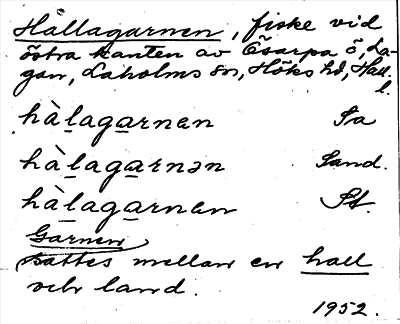 Hållagarnen, fiske vid
östra kanten av Ösarpa ö, La-
gan, Laholms sn, Höks hd, Hall.
l.
hàlagarnen Sa
hàlagarnən Sand.
hàlagarnen St.
Garnen
sattes mellan en hall
och land.
1952.